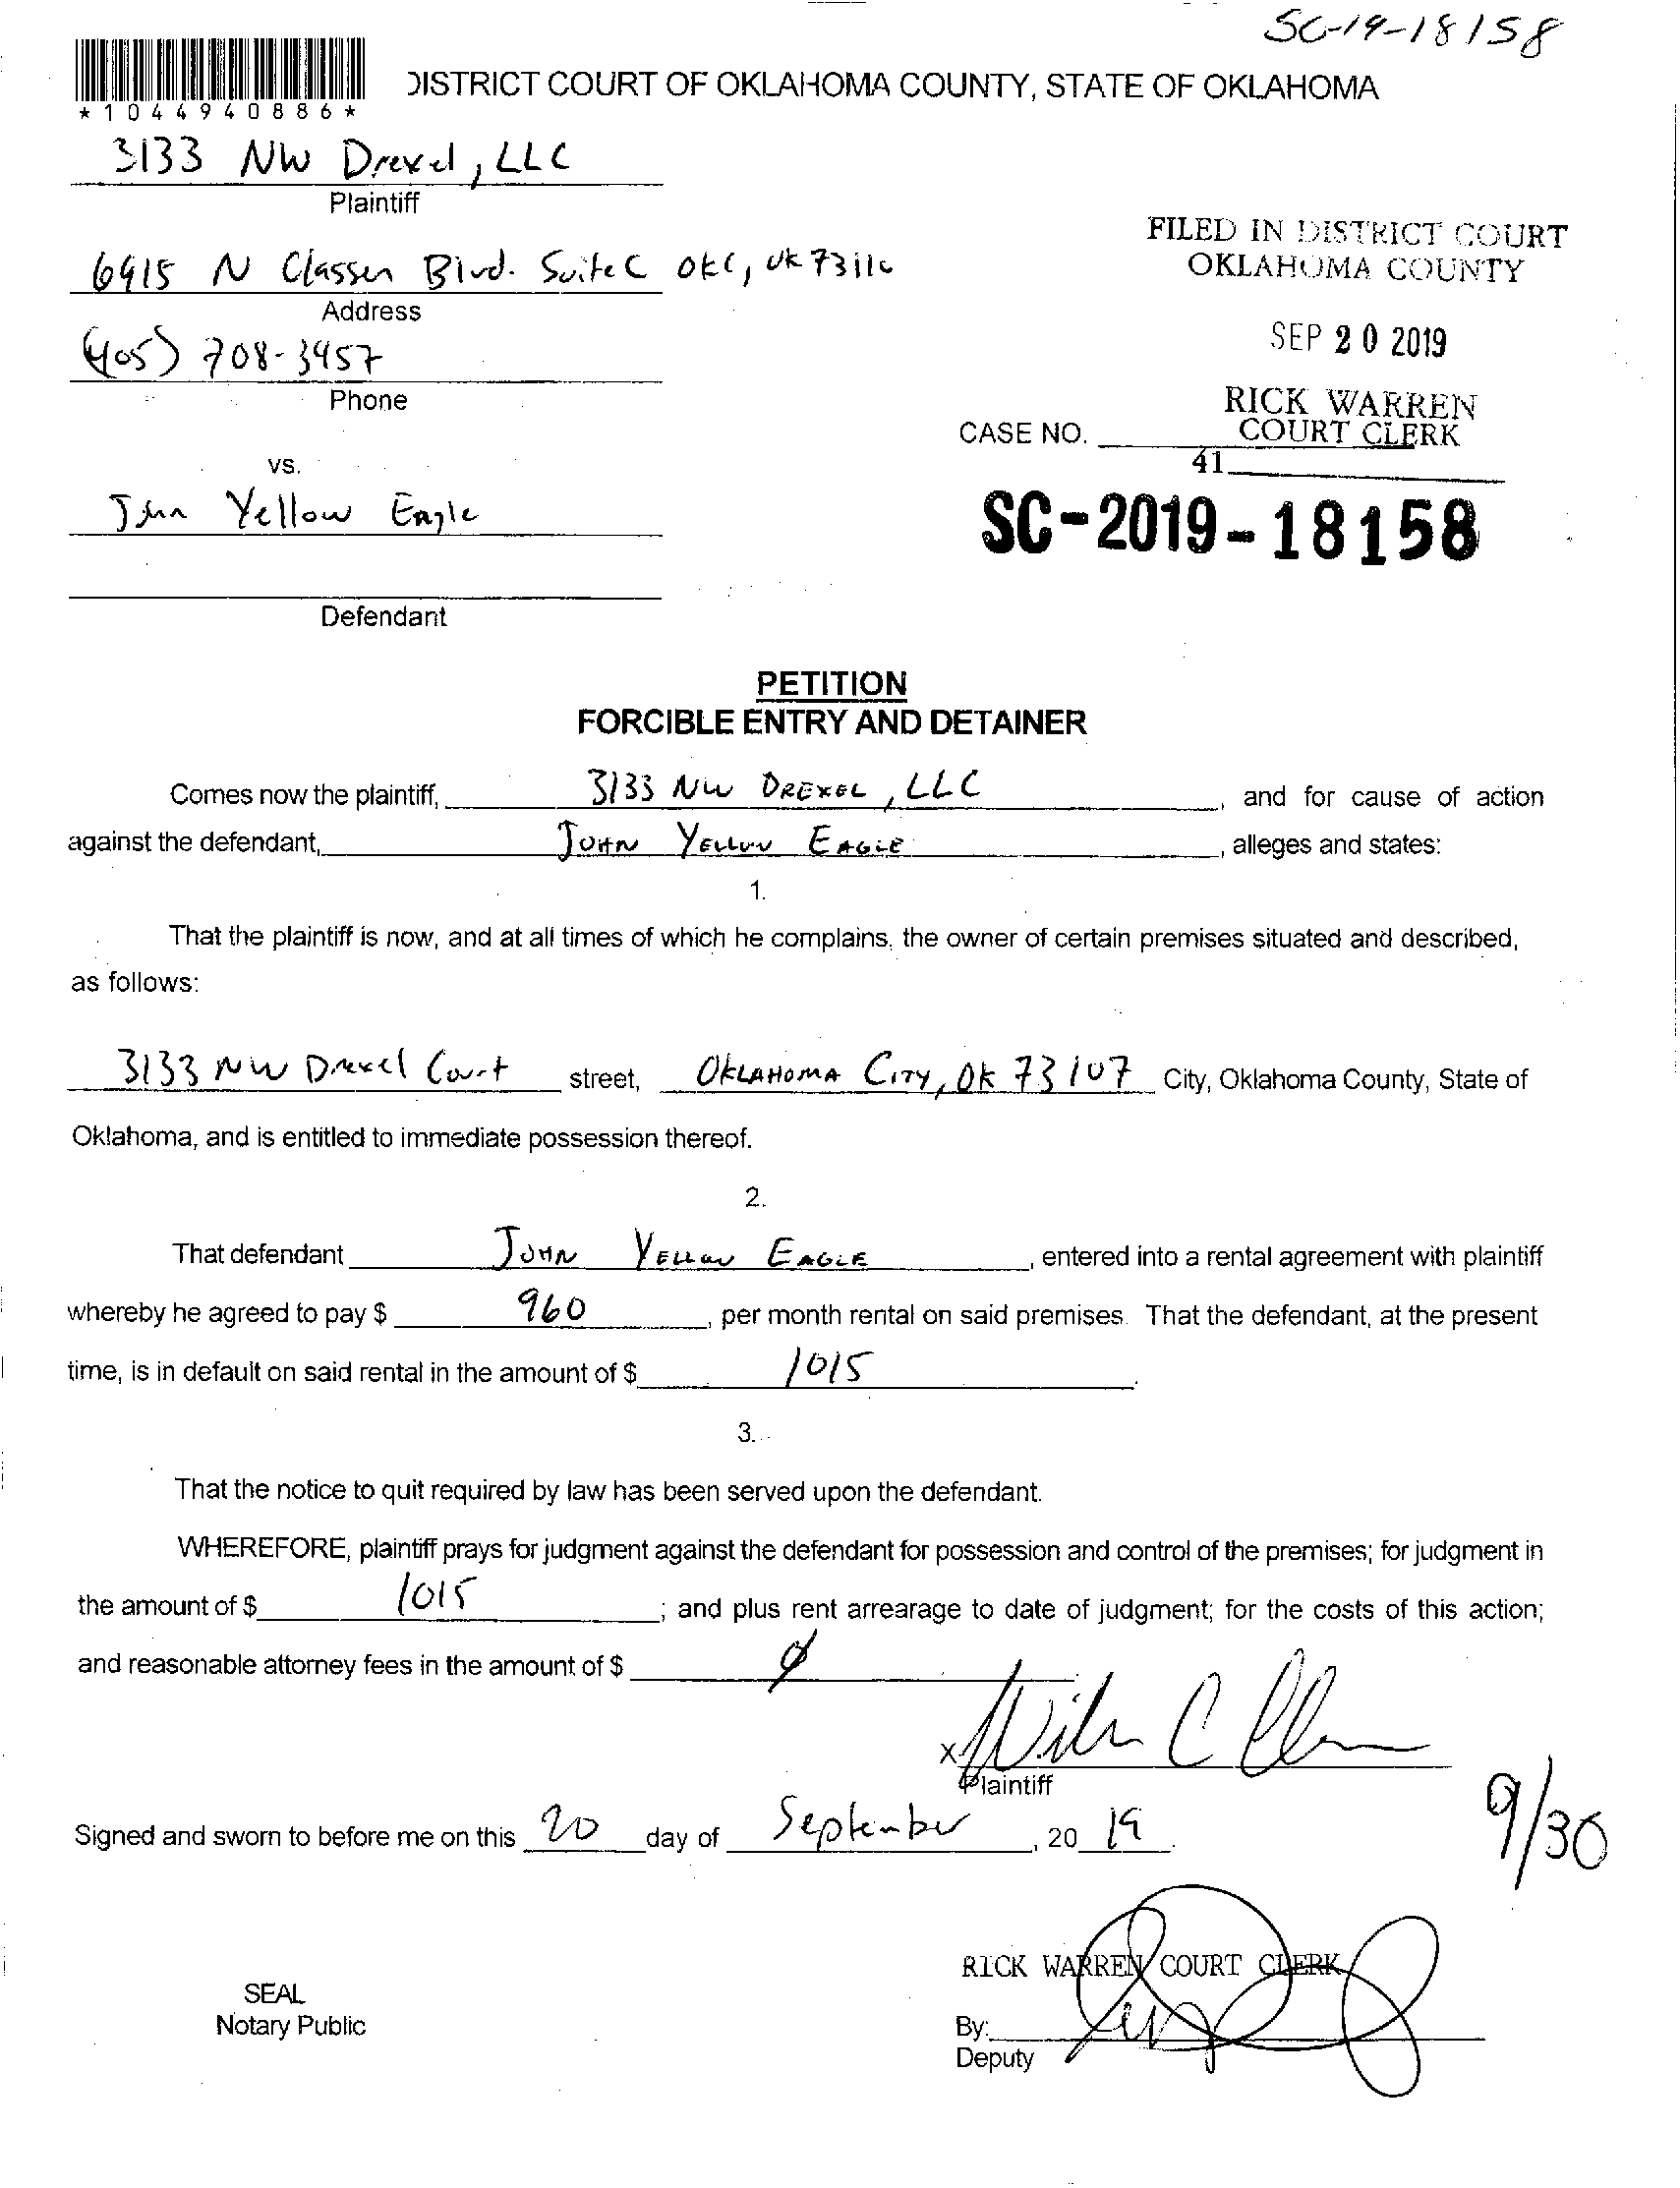 SC-19-18158
*1044940886*
DISTRICT COURT OF OKLAHOMA COUNTY, STATE OF OKLAHOMA
3133 NW Drexel, LLC
Plaintiff
6915 N Classen Blvd. Suite C OKC, OK 73116
Address
(405) 708-3457
Phone
vs.
John Yellow Eagle
Defendant
FILED IN DISTRICT COURT
OKLAHOMA COUNTY
SEP 20 2019
RICK WARREN
COURT CLERK
CASE NO.
41
SC-2019-18158
PETITION
FORCIBLE ENTRY AND DETAINER
Comes now the plaintiff, 3133 NW DREXEL, LLC, and for cause of action
against the defendant, JOHN YELLOW EAGLE, alleges and states:
1.
That the plaintiff is now, and at all times of which he complains, the owner of certain premises situated and described,
as follows:
3133 NW Drexel Court street, OKLAHOMA CITY, OK 73107 City, Oklahoma County, State of
Oklahoma, and is entitled to immediate possession thereof.
2.
That defendant JOHN YELLOW EAGLE, entered into a rental agreement with plaintiff
whereby he agreed to pay $ 960, per month rental on said premises. That the defendant, at the present
time, is in default on said rental in the amount of $ 1015.
3.
That the notice to quit required by law has been served upon the defendant.
WHEREFORE, plaintiff prays for judgment against the defendant for possession and control of the premises; for judgment in
the amount of $ 1015; and plus rent arrearage to date of judgment; for the costs of this action;
and reasonable attorney fees in the amount of $ 0
x
Plaintiff
9/30
Signed and sworn to before me on this 20 day of September, 2019.
RICK WARREN COURT CLERK
SEAL
Notary Public
By:
Deputy